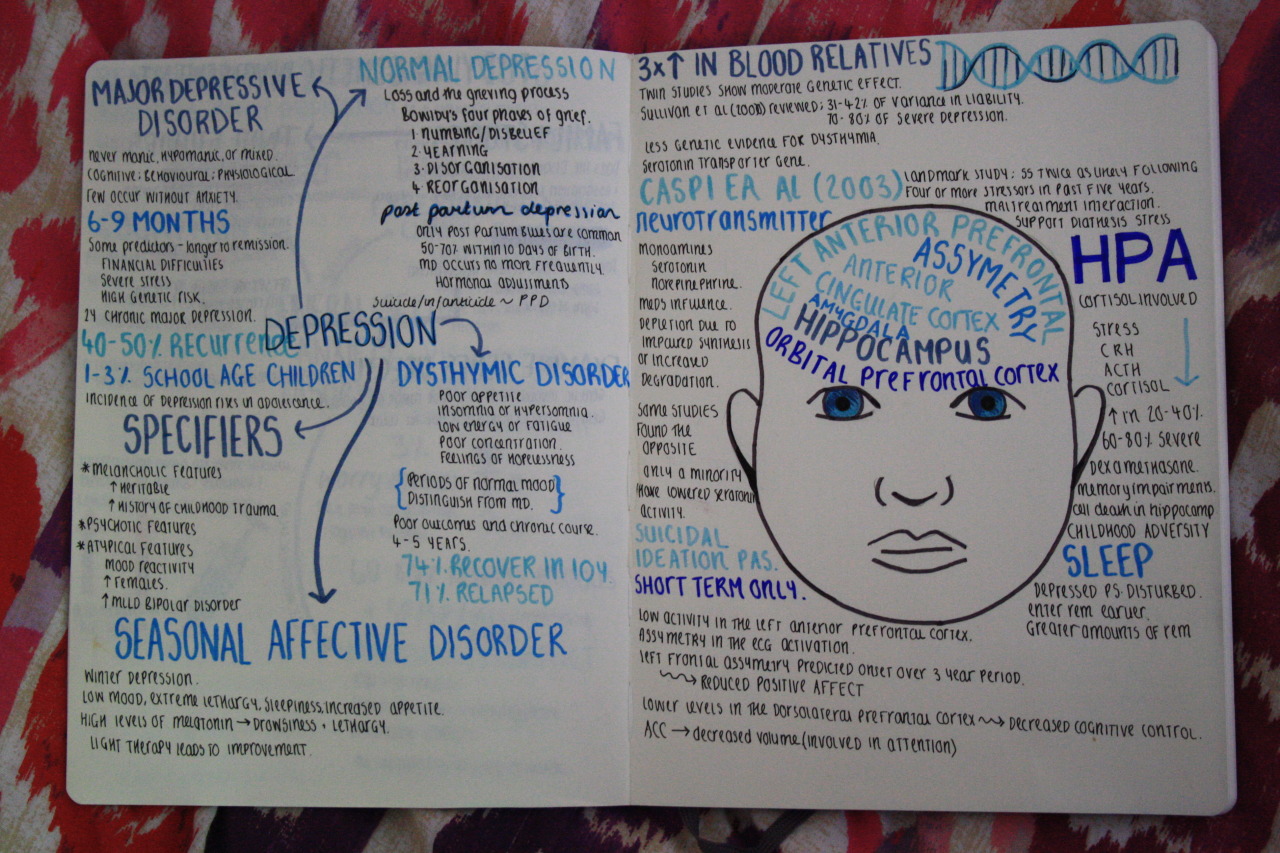 MAJOR DEPRESSIVE
DISORDER
never manic, hypomanic, or mixed.
cognitive; Behavioural; physiological
Few occur without anxiety.
6-9 MONTHS
Some predictors - longer to remission.
FINANCIAL DIFFICULTIES
Severe stress
HIGH Genetic risk.
24 chronic major depression.
40-50% Recurrence
1-3% SCHOOL AGE CHILDREN
Incidence of Depression rises in adolescence.
SPECIFIERS
*Melancholic Features
↑ Heritable
↑ History of childhood trauma.
*Psychotic Features
*Atypical Features
Mood reactivity
↑ Females.
↑ MILD Bipolar Disorder
NORMAL DEPRESSION
Loss and the grieving process
Bowlby's four phases of grief.
1 NUMBING/DISBELIEF
2. YEARNING
3. DISORGANISATION
4. REORGANISATION
post partum depression
Only post partum blues are common
50-70% WITHIN 10 DAYS OF BIRTH.
MD occurs no more frequently.
Hormonal adjustments
Suicide/in/anticide ~ PPD
DEPRESSION
DYSTHYMIC DISORDER
Poor appetite
Insomnia or Hypersomnia.
Low energy or fatigue
Poor concentration.
Feelings of hopelessness
{Periods of normal mood
Distinguish from MD.}
Poor outcomes and chronic course.
4-5 years.
74% RECOVER IN 10Y.
71% RELAPSED
SEASONAL AFFECTIVE DISORDER
Winter depression.
Low mood, extreme lethargy, sleepiness, increased appetite.
High levels of melatonin → Drowsiness + lethargy.
LIGHT Therapy leads to improvement.
3x↑ IN BLOOD RELATIVES
Twin studies show moderate genetic effect.
Sullivan et al (2000) reviewed; 31-42% of variance in liability.
70-80% of severe depression.
Less genetic evidence for dysthymia.
Serotonin transporter gene.
CASPI EA AL (2003)
Landmark study; SS twice as likely following
four or more stressors in past five years.
Maltreatment interaction.
Support diathesis stress
neurotransmitter
Monoamines
Serotonin
norepinephrine.
Meds influence.
Depletion due to
impaired synthesis
or increased
Degradation.
Some studies
found the
opposite
only a minority
have lowered serotonin
activity.
SUICIDAL
IDEATION PAS.
SHORT TERM ONLY.
LEFT ANTERIOR PREFRONTAL
ASSYMETRY
ANTERIOR
CINGULATE CORTEX
AMYGDALA
HIPPOCAMPUS
ORBITAL PREFRONTAL CORTEX
HPA
Cortisol involved
STRESS
CRH
ACTH
CORTISOL
↑ in 20-40%.
60-80% severe
Dexamethasone.
Memory impairments.
Cell death in hippocamp
CHILDHOOD ADVERSITY
SLEEP
Depressed PS. Disturbed.
enter rem earlier.
Greater amounts of rem
Low activity in the left anterior prefrontal cortex.
Assymetry in the ECG activation.
Left frontal assymetry predicted onset over 3 year period.
→ Reduced positive affect
Lower levels in the dorsolateral prefrontal cortex → decreased cognitive control.
ACC → decreased volume (involved in attention)